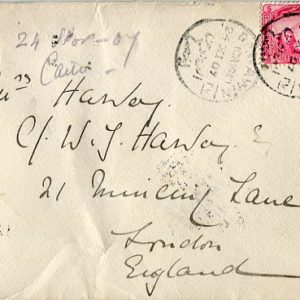 24 Nov-07
Cairo
Mrs Harvey
C/o W. J. Harvey &
21 Mincing Lane
London
England